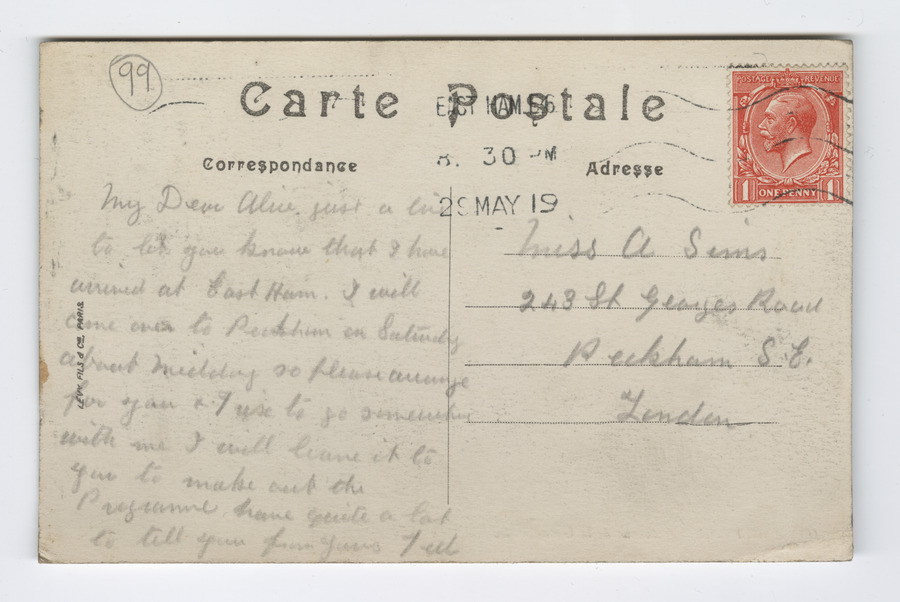 99
Carte Postale
EAST HAM. E.6
8. 30 PM
29 MAY 19
POSTAGE REVENUE
1 ONE PENNY 1
Correspondance
Adresse
My Dear Alice just a line
to let you know that I have
arrived at East Ham. I will
come over to Peckham on Saturday
about midday so please arrange
for you & to go somewhere
with me I will leave it to
you to make out the
Programme have quite a lot
to tell you from yours
LEVY FILS & Cie. PARIS
Miss A Sims
243 St Georges Road
Peckham S.E.
London